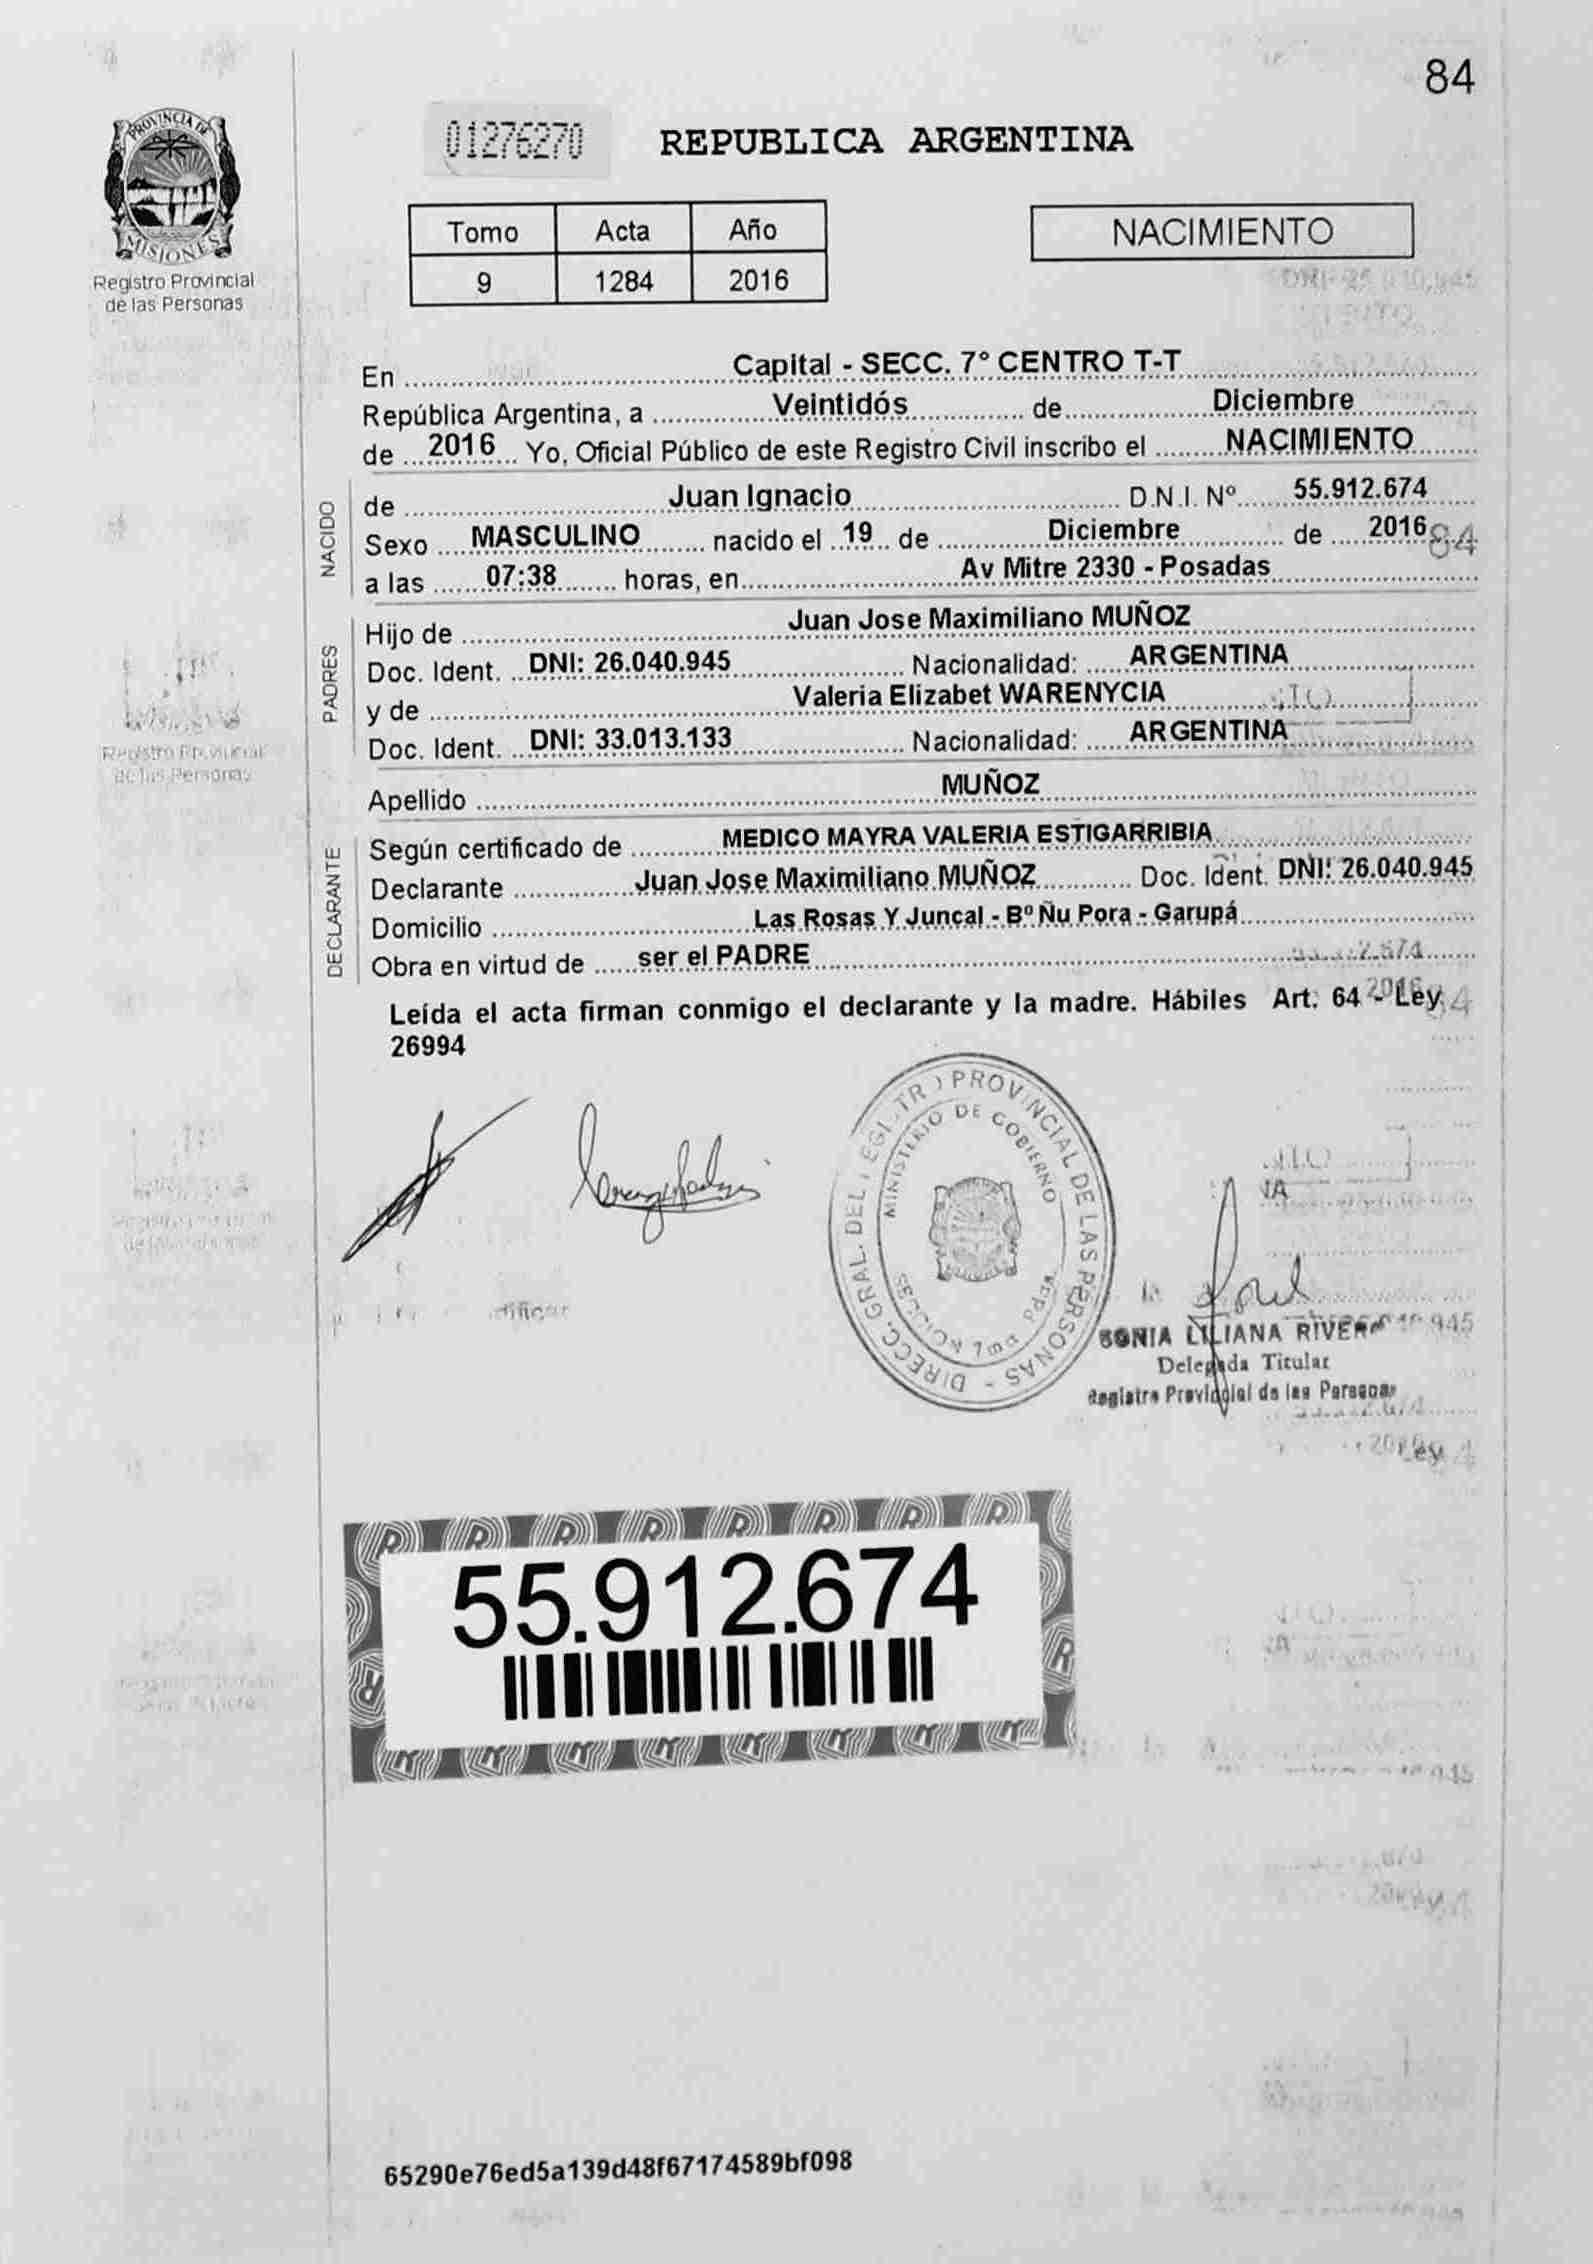 84
PROVINCIA DE
MISIONES
Registro Provincial
de las Personas
01276270 REPUBLICA ARGENTINA
Tomo Acta Año
9 1284 2016
NACIMIENTO
En Capital - SECC. 7° CENTRO T-T
República Argentina, a Veintidós de Diciembre
de 2016 Yo, Oficial Público de este Registro Civil inscribo el NACIMIENTO
NACIDO
de Juan Ignacio D.N.I. Nº 55.912.674
Sexo MASCULINO nacido el 19 de Diciembre de 2016 84
a las 07:38 horas, en Av Mitre 2330 - Posadas
PADRES
Hijo de Juan Jose Maximiliano MUÑOZ
Doc. Ident. DNI: 26.040.945 Nacionalidad: ARGENTINA
y de Valeria Elizabet WARENYCIA
Doc. Ident. DNI: 33.013.133 Nacionalidad: ARGENTINA
Apellido MUÑOZ
DECLARANTE
Según certificado de MEDICO MAYRA VALERIA ESTIGARRIBIA
Declarante Juan Jose Maximiliano MUÑOZ Doc. Ident. DNI: 26.040.945
Domicilio Las Rosas Y Juncal - Bº Ñu Pora - Garupá
Obra en virtud de ser el PADRE
Leída el acta firman conmigo el declarante y la madre. Hábiles Art. 64 - Ley
26994
PROVINCIAL DE LAS PERSONAS - DIRECC. GRAL. DEL
MINISTERIO DE GOBIERNO
SONIA LILIANA RIVERO
Delegada Titular
Registro Provincial de las Personas
55.912.674
65290e76ed5a139d48f67174589bf098